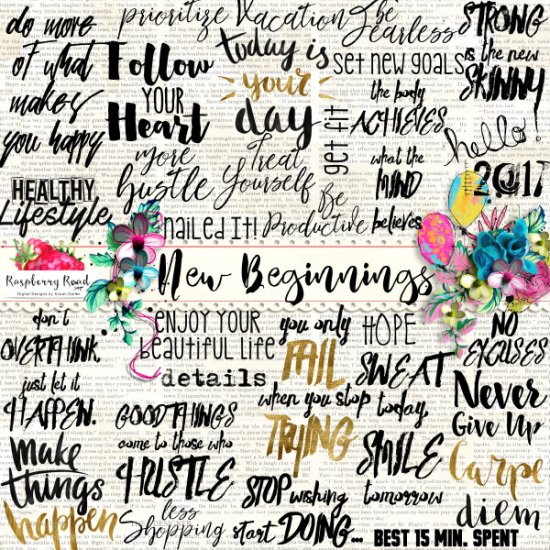 do more
of what
makes
you happy
prioritize
Vacation
Be
Fearless
STRONG
is the new
SKINNY
Follow
YOUR
Heart
today is
your
day
set new goals
the body
ACHIEVES
what the
MIND
believes
hello!
2017
get fit
more
hustle
Treat
Yourself
Be
Productive
HEALTHY
Lifestyle
nailed It!
Raspberry Road
New Beginnings
don't
OVERTHINK.
just let it
HAPPEN.
enjoy your
beautiful life
details
you only
FAIL
when you stop
TRYING
HOPE
SWEAT
today
SMILE
tomorrow
NO
EXCUSES
Never
Give Up
Carpe
diem
GOOD THINGS
come to those who
HUSTLE
make
things
happen
less
Shopping
STOP wishing
start DOING...
BEST 15 MIN. SPENT